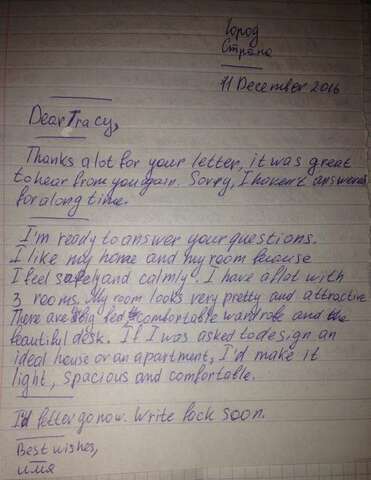 Город
Страна
11 December 2016
Dear Tracy,
Thanks a lot for your letter, it was great
to hear from you again. Sorry, I haven't answered
for along time.
I'm ready to answer your questions.
I like my home and my room because
I feel safely and calmly. I have a flat with
3 rooms. My room looks very pretty and attractive
There are big bed comfortable wardrobe and the
beautiful desk. If I was asked to design an
ideal house or an apartment, I'd make it
light, spacious and comfortable.
I'd better go now. Write back soon.
Best wishes,
имя